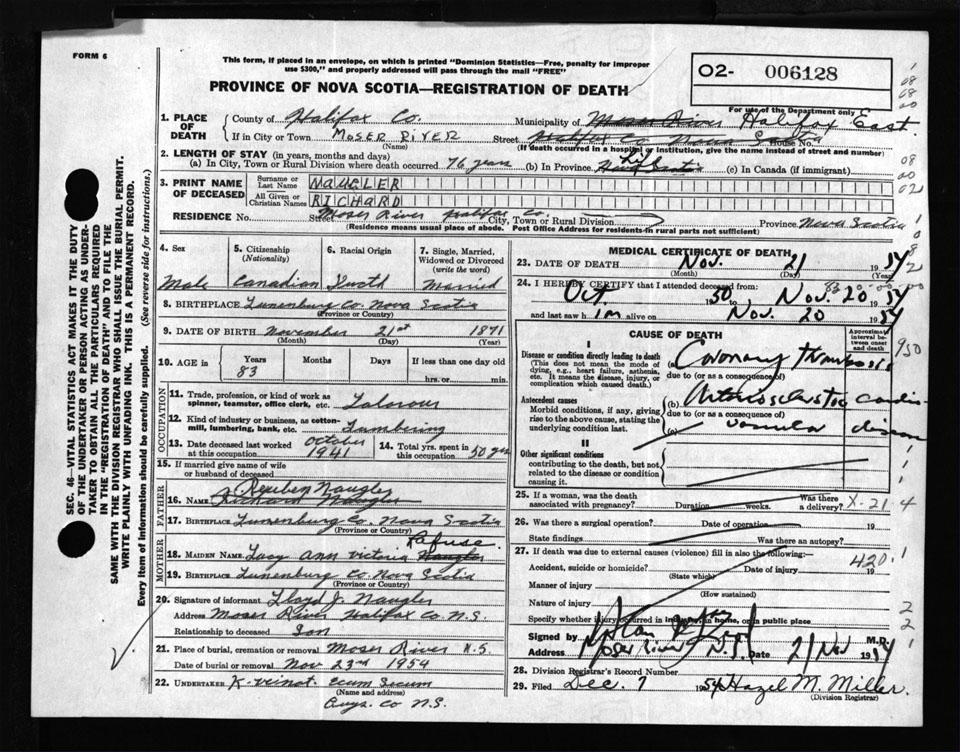 FORM 6
This form, if placed in an envelope, on which is printed "Dominion Statistics—Free, penalty for improper
use $300," and properly addressed will pass through the mail "FREE"
02- 006128
For use of the Department only
PROVINCE OF NOVA SCOTIA—REGISTRATION OF DEATH
SEC. 46—VITAL STATISTICS ACT MAKES IT THE DUTY
OF THE UNDERTAKER OR PERSON ACTING AS UNDER-
TAKER TO OBTAIN ALL THE PARTICULARS REQUIRED
IN THE "REGISTRATION OF DEATH" AND TO FILE THE
SAME WITH THE DIVISION REGISTRAR WHO SHALL ISSUE THE BURIAL PERMIT.
WRITE PLAINLY WITH UNFADING INK. THIS IS A PERMANENT RECORD.
Every item of Information should be carefully supplied. (See reverse side for instructions.)
1. PLACE OF DEATH County of Halifax Co. Municipality of Moser River Halifax East.
If in City or Town MOSER RIVER Street Halifax Co. Nova Scotia House No.
(Name) (If death occurred in a hospital or institution, give the name instead of street and number)
2. LENGTH OF STAY (in years, months and days)
(a) In City, Town or Rural Division where death occurred 76 years (b) In Province Nova Scotia Life (c) In Canada (if immigrant)
3. PRINT NAME OF DECEASED Surname or Last Name NAUGLER
All Given or Christian Names RICHARD
RESIDENCE No. Street Moser River Halifax Co. City, Town or Rural Division Province Nova Scotia
(Residence means usual place of abode. Post Office Address for residents in rural parts not sufficient)
4. Sex Male
5. Citizenship (Nationality) Canadian
6. Racial Origin
7. Single, Married, Widowed or Divorced (write the word) Married
8. BIRTHPLACE Lunenburg Co. Nova Scotia
(Province or Country)
9. DATE OF BIRTH November 21st 1871
(Month) (Day) (Year)
10. AGE in Years 83 Months Days If less than one day old hrs. or min.
OCCUPATION
11. Trade, profession, or kind of work as spinner, teamster, office clerk, etc. Laborour
12. Kind of industry or business, as cotton-mill, lumbering, bank, etc. Lumbering
13. Date deceased last worked at this occupation October 1941
14. Total yrs. spent in this occupation 50 yrs
15. If married give name of wife or husband of deceased
FATHER
16. NAME Reuben Naugler
17. BIRTHPLACE Lunenburg Co. Nova Scotia
(Province or Country)
MOTHER
18. MAIDEN NAME Lucy Ann Victoria Naugler
19. BIRTHPLACE Lunenburg Co Nova Scotia
(Province or Country)
20. Signature of informant Lloyd J. Naugler
Address Moser River Halifax Co. N.S.
Relationship to deceased Son
21. Place of burial, cremation or removal Moser River N.S.
Date of burial or removal Nov 23rd 1954
22. UNDERTAKER K. Veinot Ecum Secum
(Name and address)
Guys. Co N.S.
MEDICAL CERTIFICATE OF DEATH
23. DATE OF DEATH Nov. 21 1954
(Month) (Day) (Year)
24. I HEREBY CERTIFY that I attended deceased from:
Oct 1950 to Nov. 20 1954
and last saw him alive on Nov. 20 1954
CAUSE OF DEATH
Approximate interval between onset and death
I
Disease or condition directly leading to death
(This does not mean the mode of dying, e.g., heart failure, asthenia, etc. It means the disease, injury, or complication which caused death.)
(a) Coronary thrombosis
due to (or as a consequence of)
Antecedent causes
Morbid conditions, if any, giving rise to the above cause, stating the underlying condition last.
(b) Arteriosclerotic Cardio
due to (or as a consequence of)
(c) vascular disease
II
Other significant conditions
contributing to the death, but not related to the disease or condition causing it.
25. If a woman, was the death associated with pregnancy? Duration weeks. Was there a delivery? X-21
26. Was there a surgical operation? Date of operation
State findings Was there an autopsy?
27. If death was due to external causes (violence) fill in also the following:
Accident, suicide or homicide? Date of injury 19 420.1
(State which)
Manner of injury
(How sustained)
Nature of injury
Specify whether injury occurred in industry, in home, or in public place
Signed by M.D.
Address Moser River N.S. Date 21 Nov 1954
28. Division Registrar's Record Number
29. Filed Dec. 7 1954 Hazel M. Miller.
(Division Registrar)